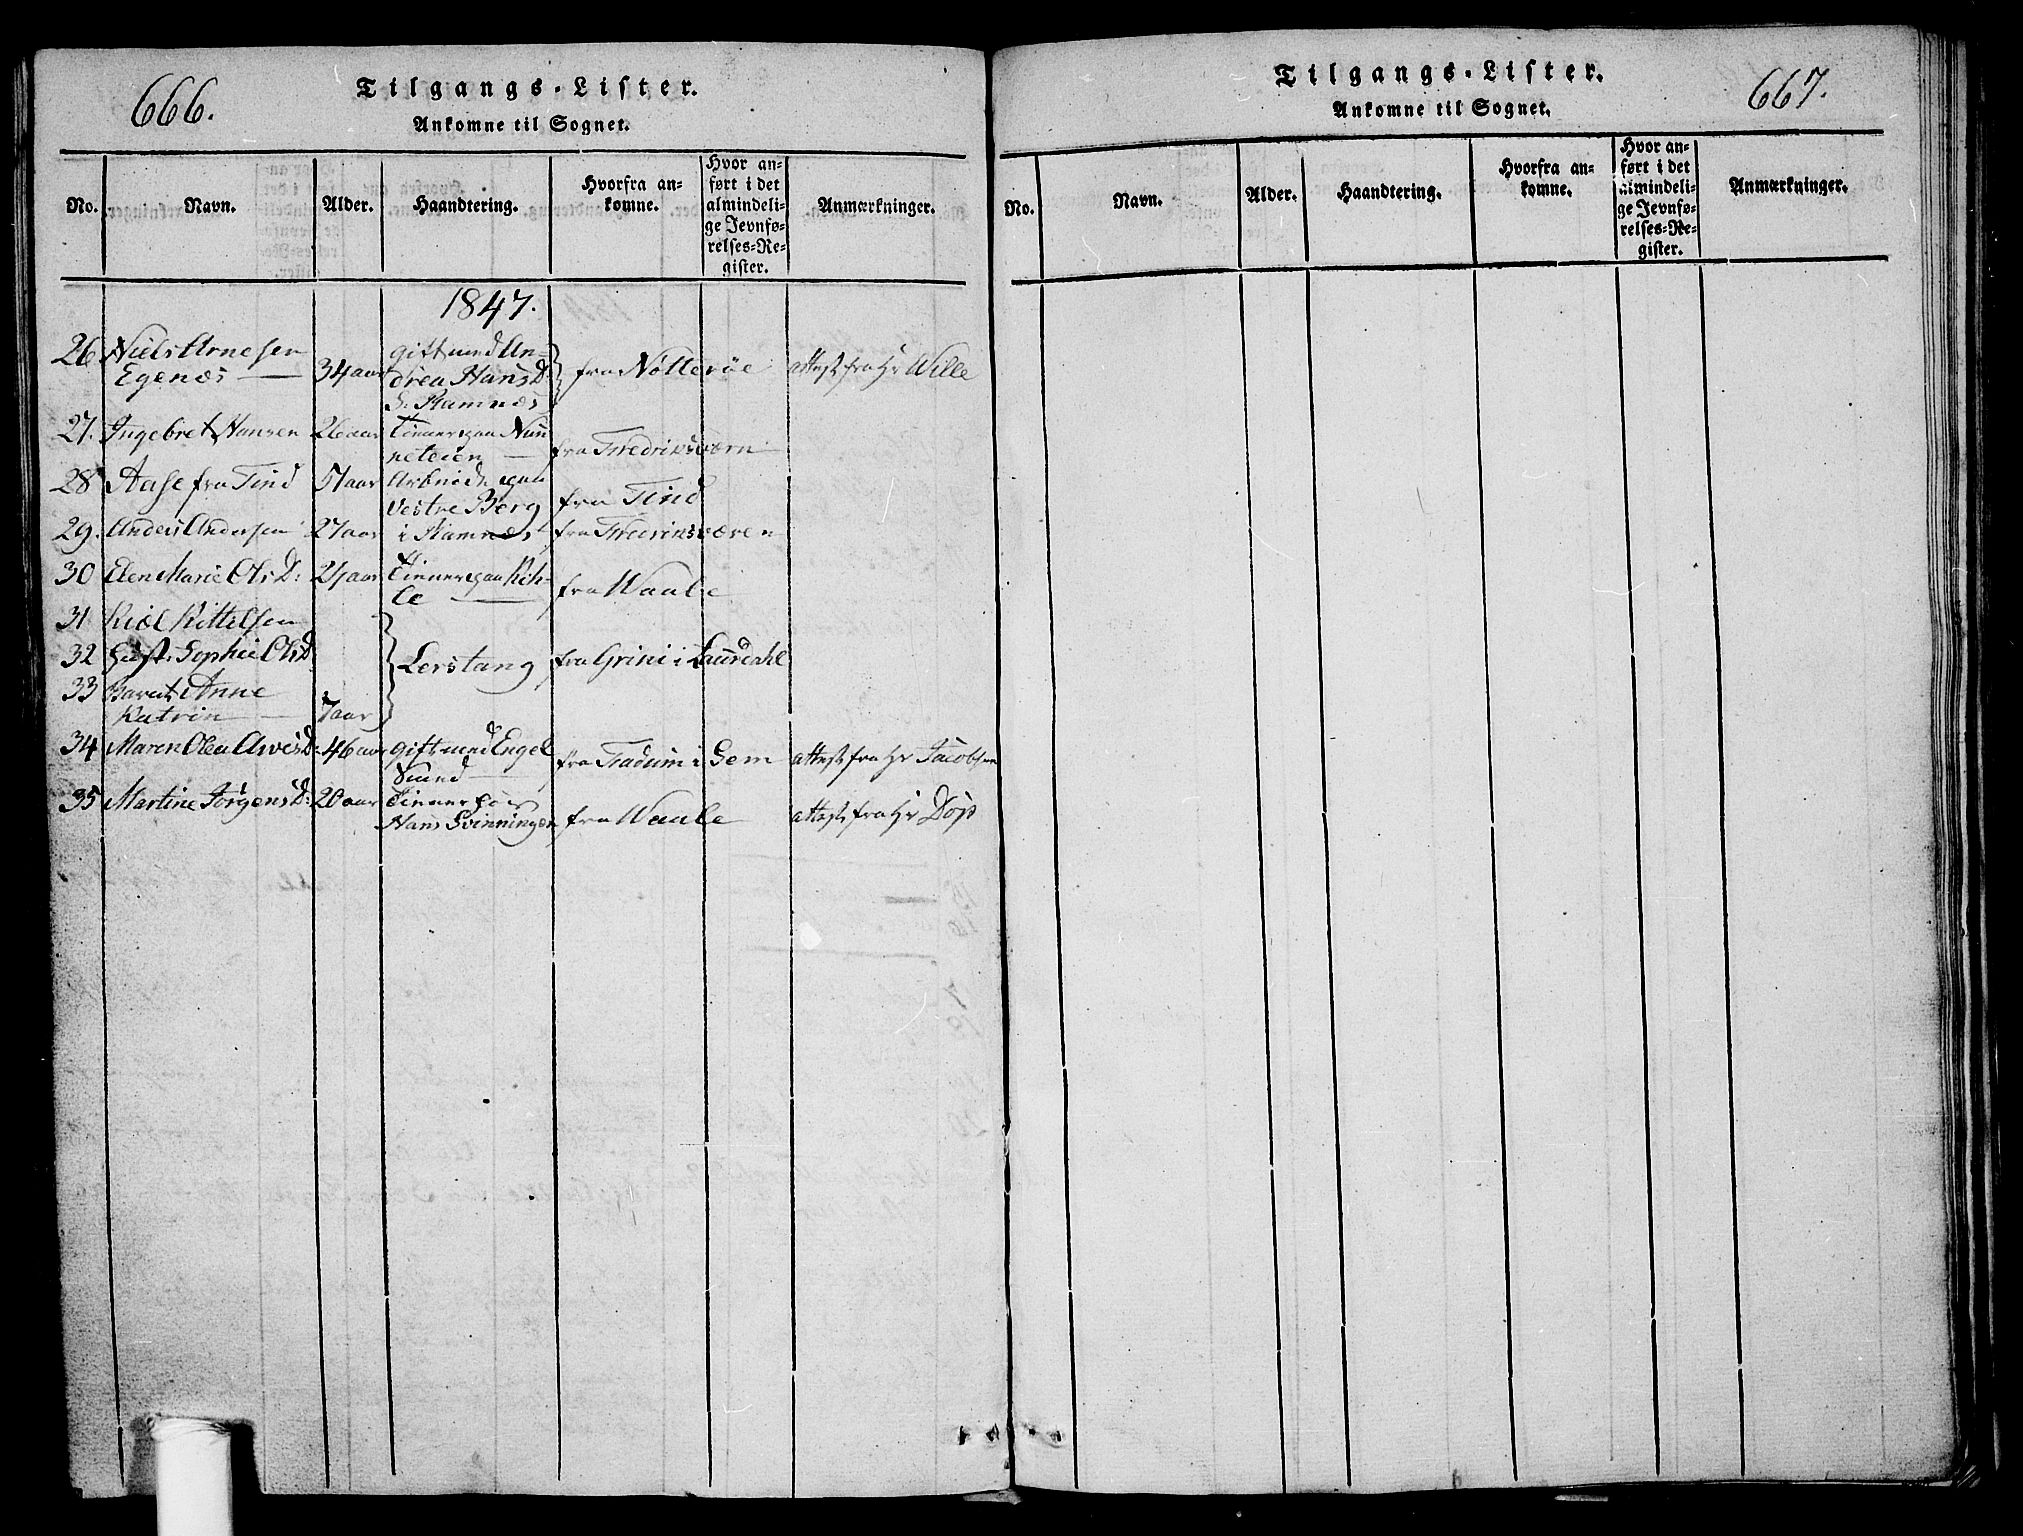 666.
Tilgangs-Lister.
Ankomne til Sognet.
No.
Navn.
Alder.
Haandtering.
Hvorfra an-
komne.
Hvor an-
ført i det
almindeli-
ge Jevnfø-
relses-Re-
gister.
Anmærkninger.
1847.
26 Niels Arnesen gift med An-
Egenæs — 34 aar drea Hans D. fra Nötteröe attest fra Hr Wille
S. Ramnæs
27. Ingebret Hansen 26 aar Tiener paa
— fra Fredriksværn
28 Aase fra Tind 57 aar Arbeid. paa
Vestre Berg fra Tind
29. Anders Andersen 27 aar i Ramnæs fra Fredriksværen
30 Elen Marie Ols D: 24 aar Tiener paa
— fra Waale
31 Kiöl Kittelsen
32 Hust. Sophie Ols D. Lerstang fra Grini i Laurdahl
33 Barnet Anne
Katrin — 7 aar
34 Maren Olea Arves D: 46 aar gift med Engel fra i Sem attest fra Hr Jacobsen
—
35 Martine Jörgens D: 20 aar Tiener hos
Hans Svinningen fra Waale attest fra Hr
667.
Tilgangs-Lister.
Ankomne til Sognet.
No.
Navn.
Alder.
Haandtering.
Hvorfra an-
komne.
Hvor an-
ført i det
almindeli-
ge Jevnfø-
relses-Re-
gister.
Anmærkninger.